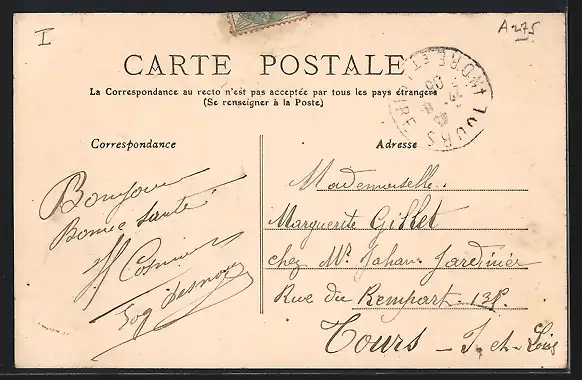 I
A 275
CARTE POSTALE
La Correspondance au recto n'est pas acceptée par tous les pays étrangers
(Se renseigner à la Poste)
TOURS
INDRE ET LOIRE
Correspondance
Bonjour
Bonne Santé
Adresse
Mademoiselle
Marguerite Gillet
chez Mr. Johan Jardinier
Rue du Rempart 131
Tours - I. et-Loir